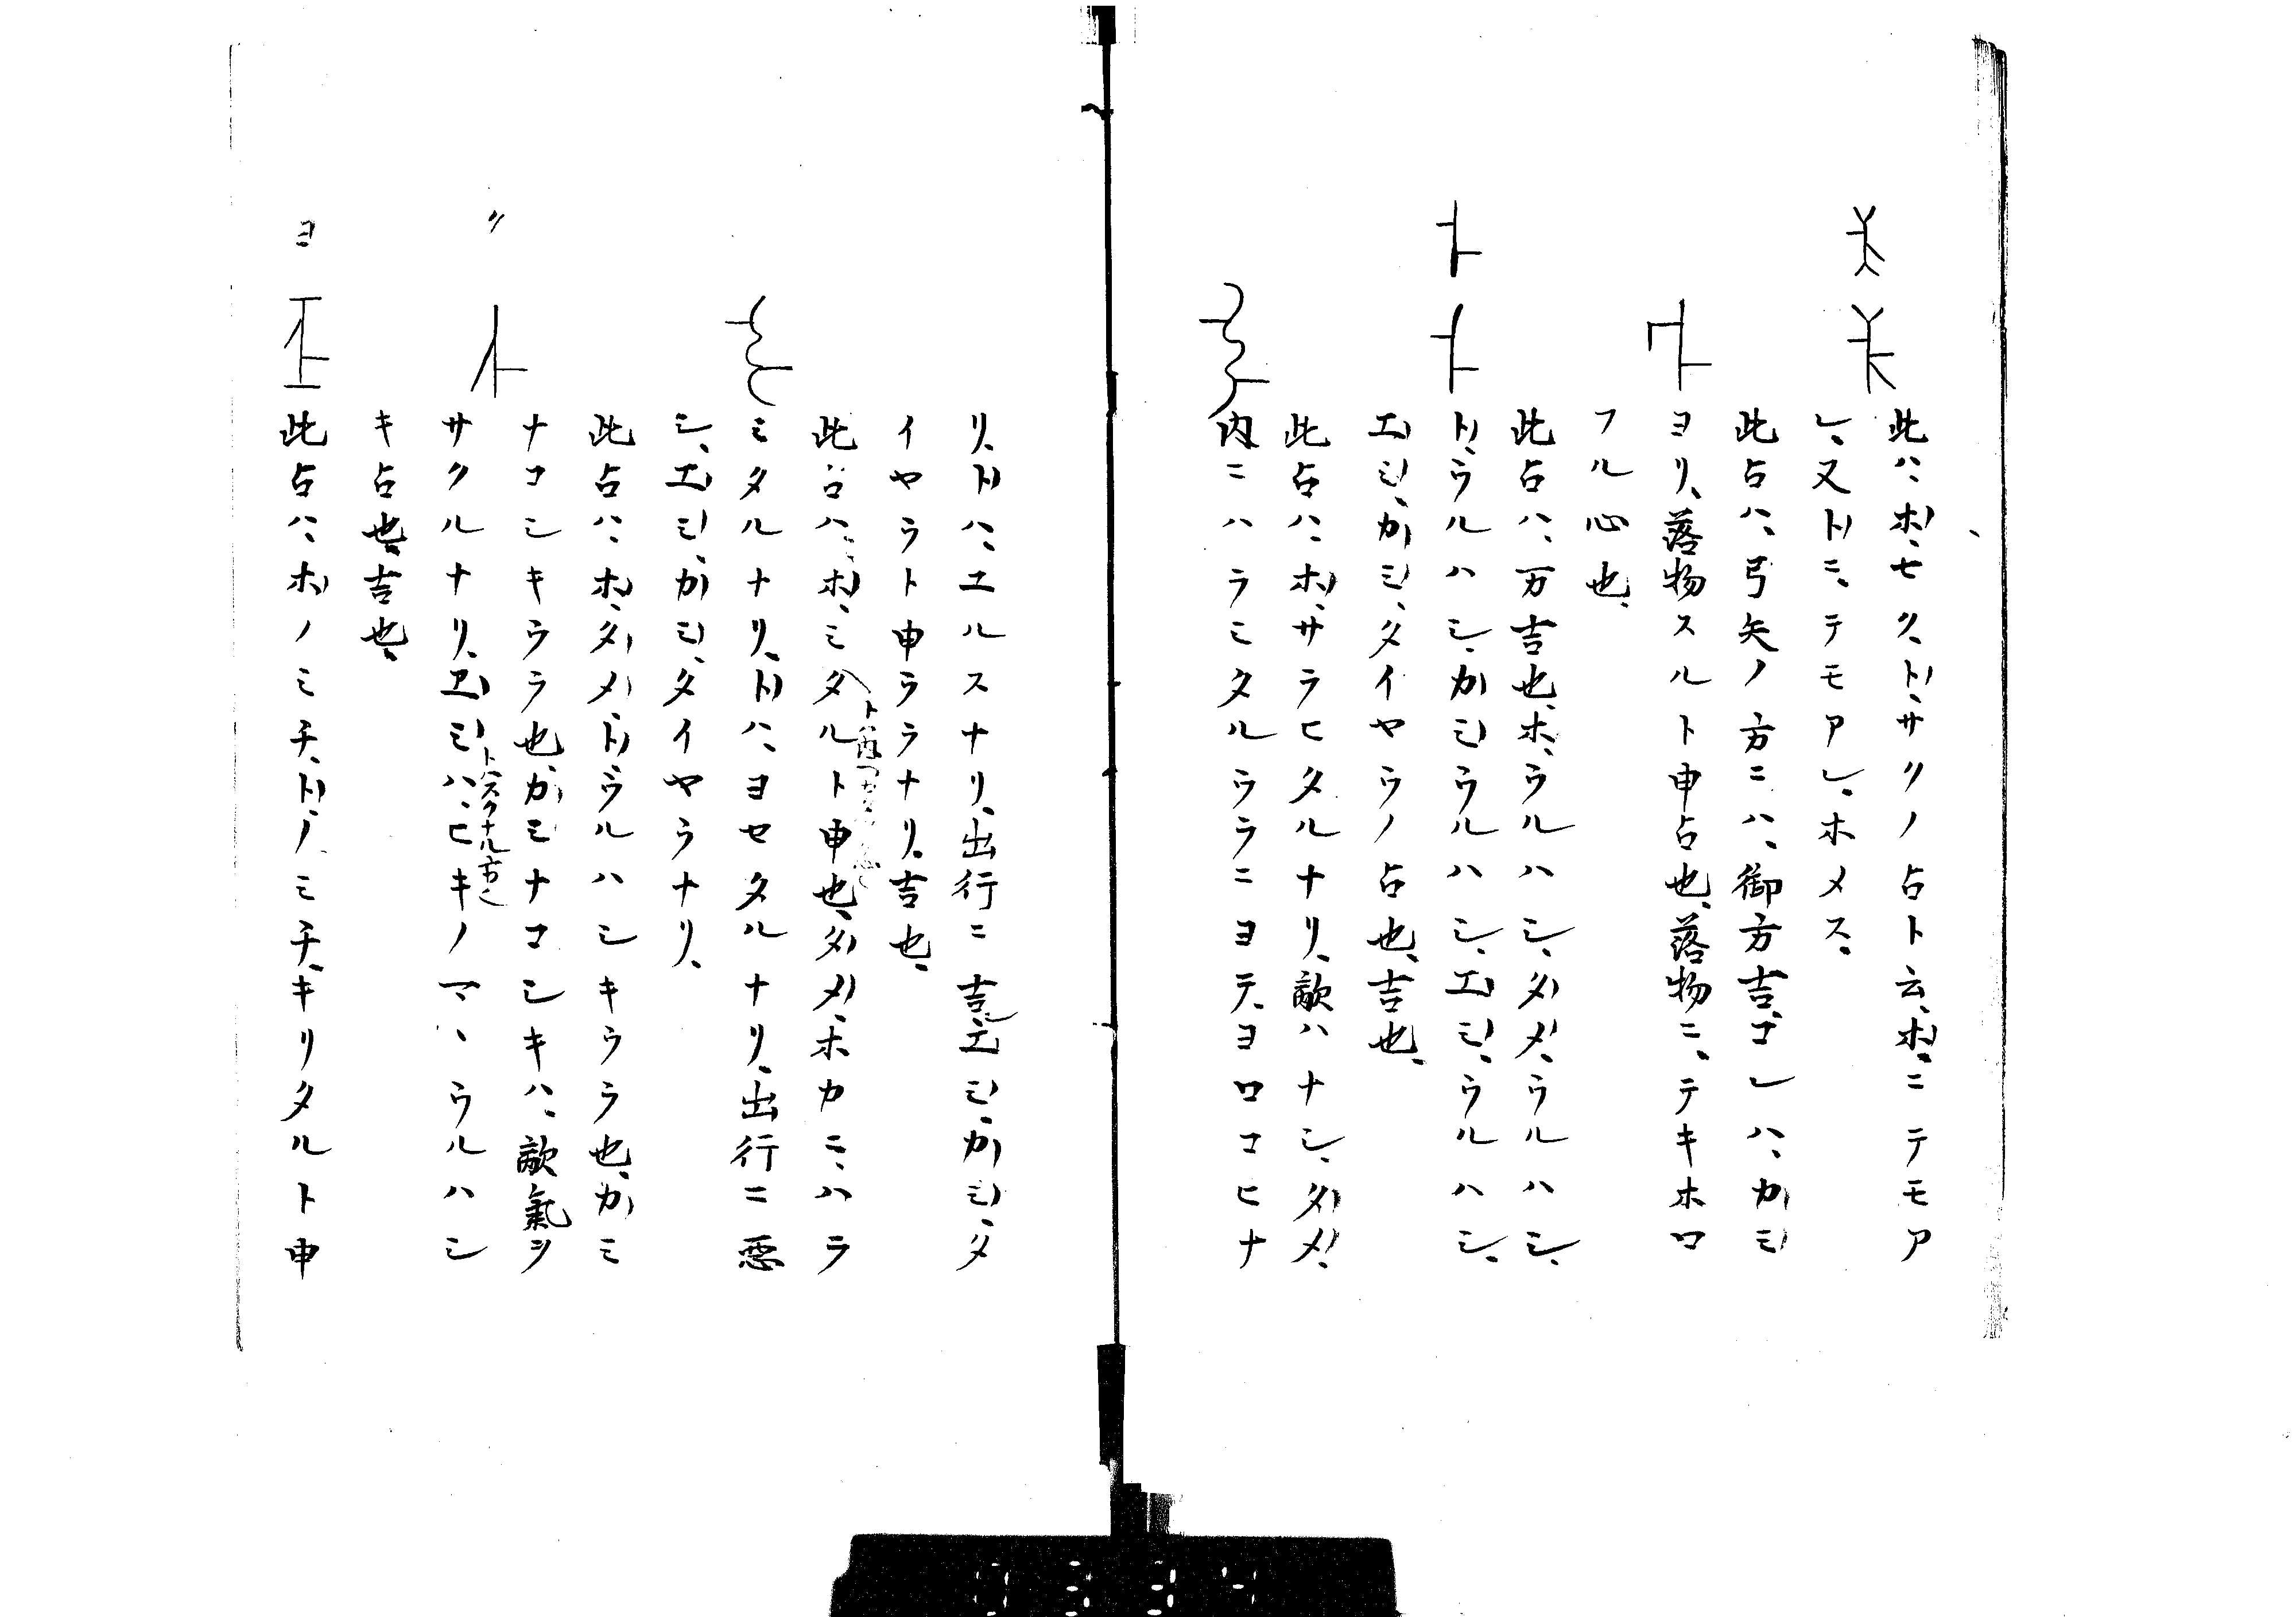 此ハ、ホ、セク、ト、サクノ占ト云、ホ、ニテモア
レ、又トニ、テモアレ、ホメス、
此占ハ、弓矢ノ方ニハ、御方吉、コレハ、カミ
ヨリ、落物スルト申占也、落物ニ、テキホロ
フル心也、
此占ハ、万吉也、ホ、ウルハシ、タメ、ウルハシ、
ト、ウルハシ、カミ、ウルハシ、エミ、ウルハシ、
エミ、カミ、タイヤウノ占也、吉也、
此占ハ、ホ、サラヒタルナリ、敵ハナシ、タメ、
内ニハラミタルウラニヨテ、ヨロコヒナ
リ、トハ、ユルスナリ、出行ニ吉、エミ、カミ、タ
イヤウト申ウラナリ、吉也、
此占ハ、ホ、ミタルト申也、タメ、ホカニ、ハラ
ミタルナリ、トハ、ヨセタルナリ、出行ニ悪
シ、エミ、カミ、タイヤウナリ、
〃
此占ハ、ホ、タメ、ト、ウルハシキウラ也、カミ
ナコシキウラ也、カミナコシキハ、敵氣ヲ
サクルナリ、エミハ、ヒキノマヽウルハシ
トハスクナル方也
キ占也、吉也、
ヨ
此占ハ、ホノミチ、トノミチ、キリタルト申